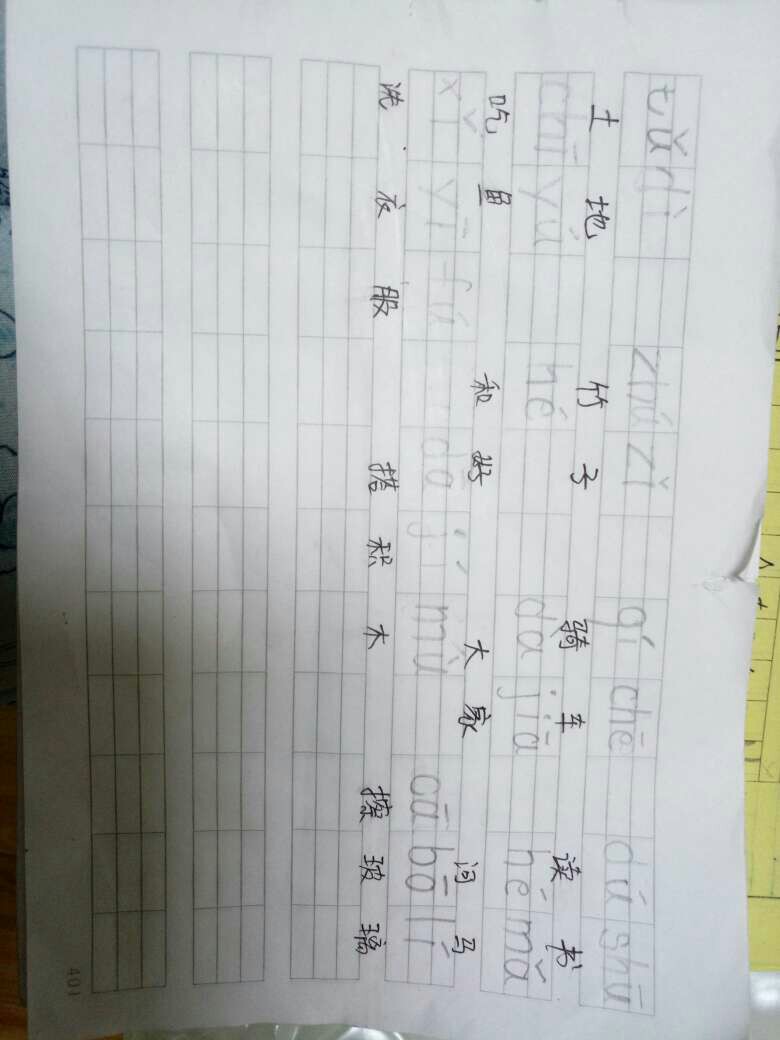 tǔ dì zhú zǐ qí chē dú shū
土地 竹子 骑车 读书
chī yú hé dà jiā hé mǎ
吃鱼 和好 大家 河马
xǐ yī fú dā jī mù cā bō lí
洗衣服 搭积木 擦玻璃
401